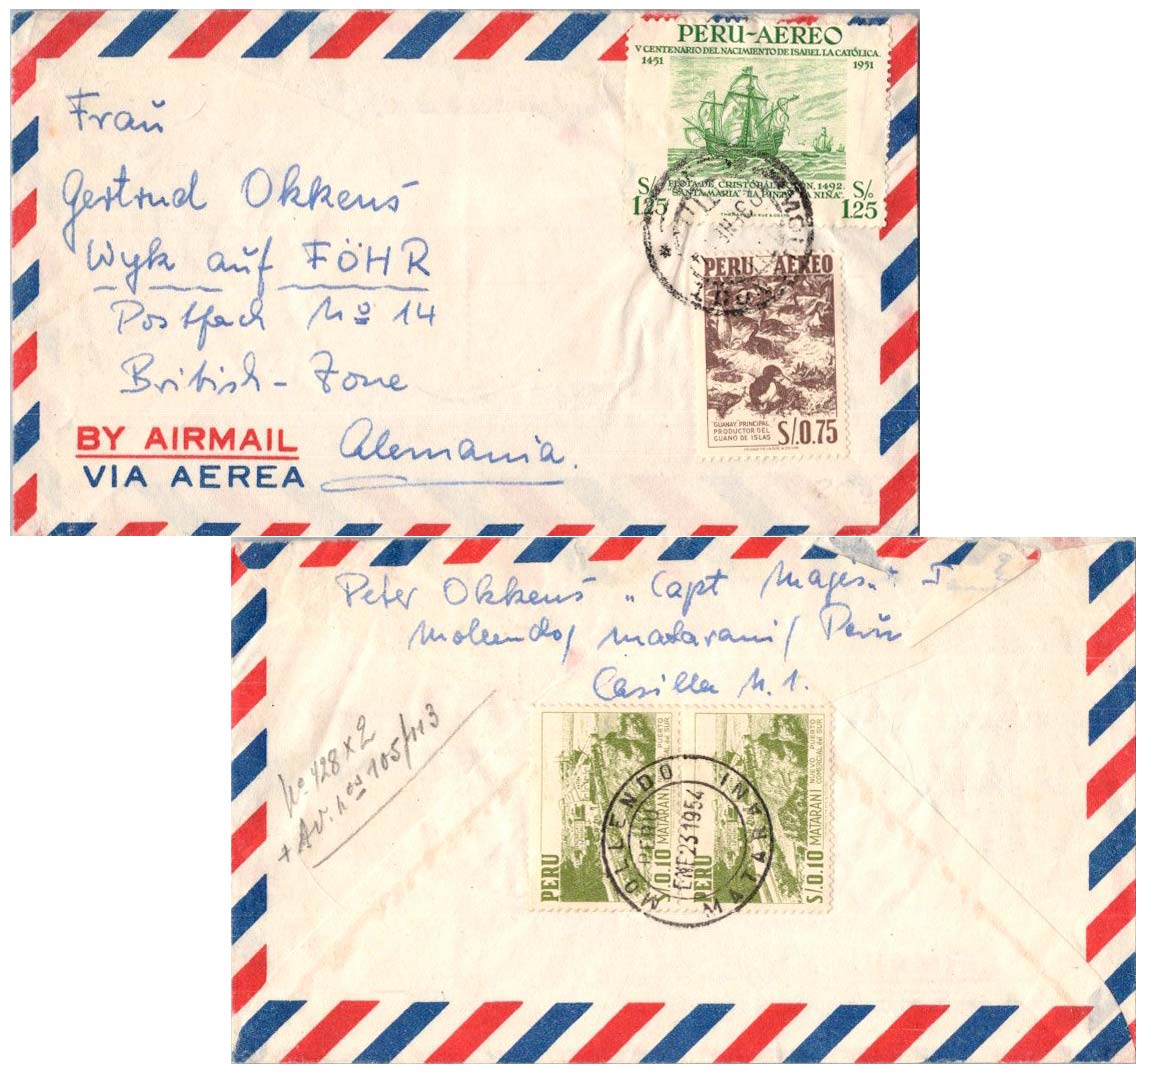 Frau
Gertrud Okkens
Wyk auf FÖHR
Postfach No 14
British-Zone
Alemania.
BY AIRMAIL
VIA AEREA
PERU-AEREO
V CENTENARIO DEL NACIMIENTO DE ISABEL LA CATÓLICA.
1451 1951
FLOTA DE CRISTOBAL N, 1492.
"SANTA MARIA" "LA PINTA" NIÑA".
S/o 1.25 S/o 1.25
PERU AEREO
GUANAY PRINCIPAL
PRODUCTOR DEL
GUANO DE ISLAS
S/.0.75
Peter Okkens „Capt
Mollendo/ Matarani/ Perú
Casilla N. 1.
No 428 x 2
+ Av. nos 105/113
PERU
S/.0.10 MATARANI
PUERTO
del SUR
PERU
S/.0.10 MATARANI
NUEVO PUERTO
COMERCIAL del SUR
MOLLENDO MATARANI
PERU
ENE 23 1954